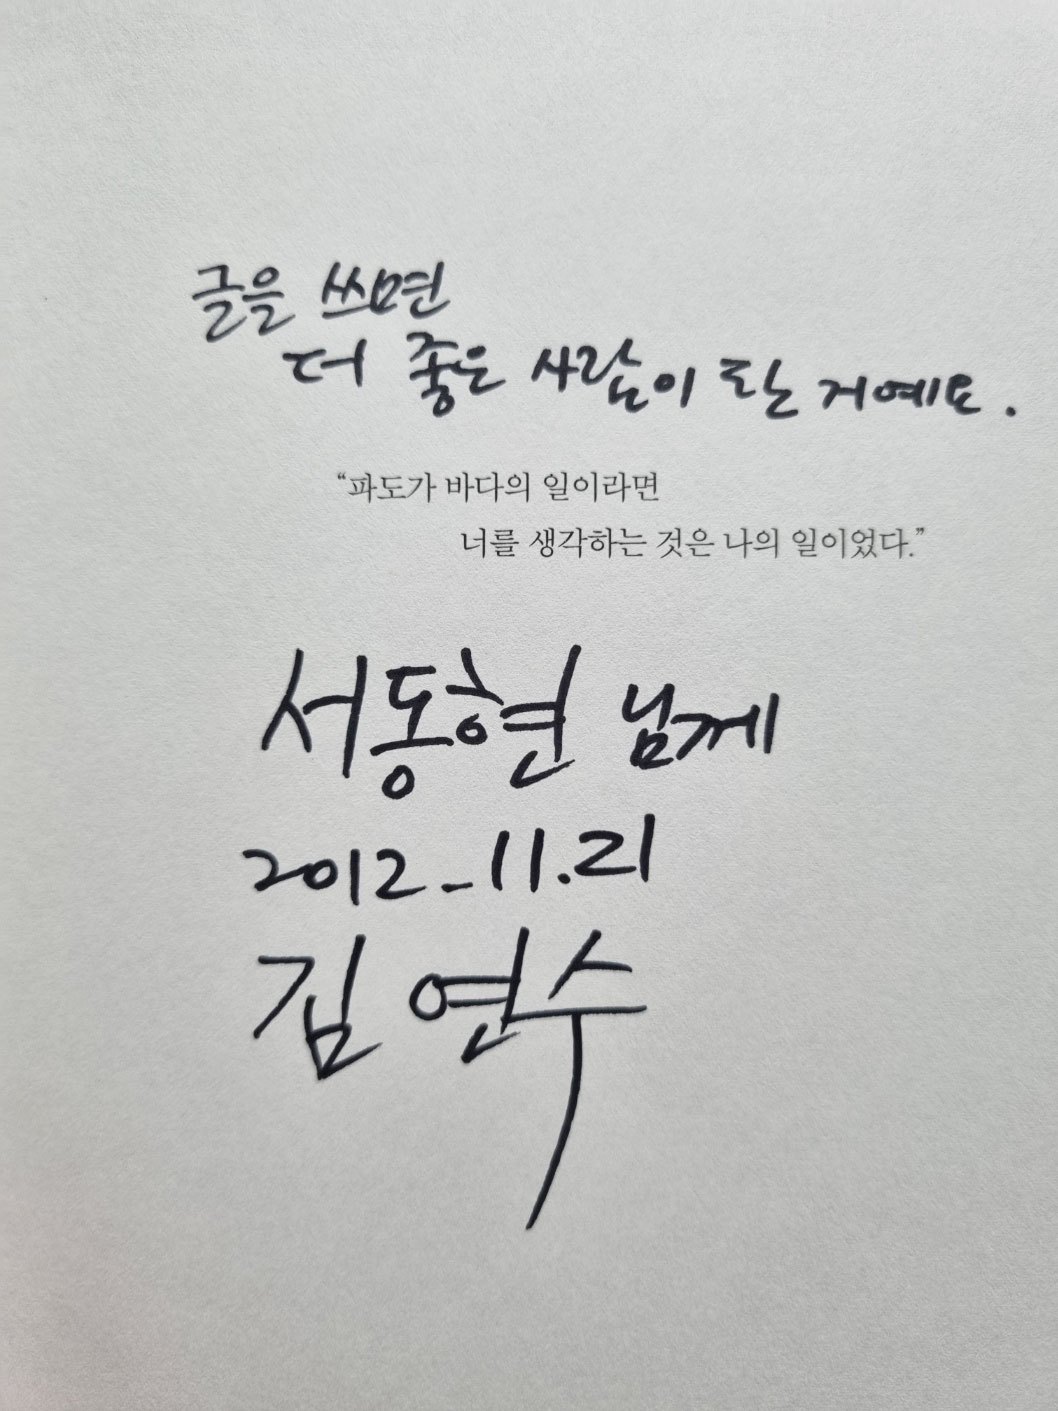 글을 쓰면
더 좋은 사람이 되는 거예요.
“파도가 바다의 일이라면
너를 생각하는 것은 나의 일이었다.”
서동현 님께
2012_11.21
김연수